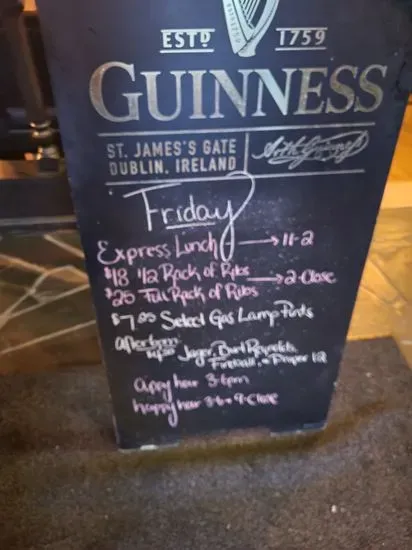 ESTD 1759
GUINNESS
ST. JAMES'S GATE
DUBLIN, IRELAND
Arth Guinness
Friday
Express Lunch → 11-2
$18 1/2 Rack of Ribs → 2-Close
$25 Full Rack of Ribs
$7.00 Select Gas Lamp Pints
Afterburn
Jager, Burt Reynolds,
Fireball, Proper 12
appy hour 3-6pm
happy hour 3-6 + 9-Close